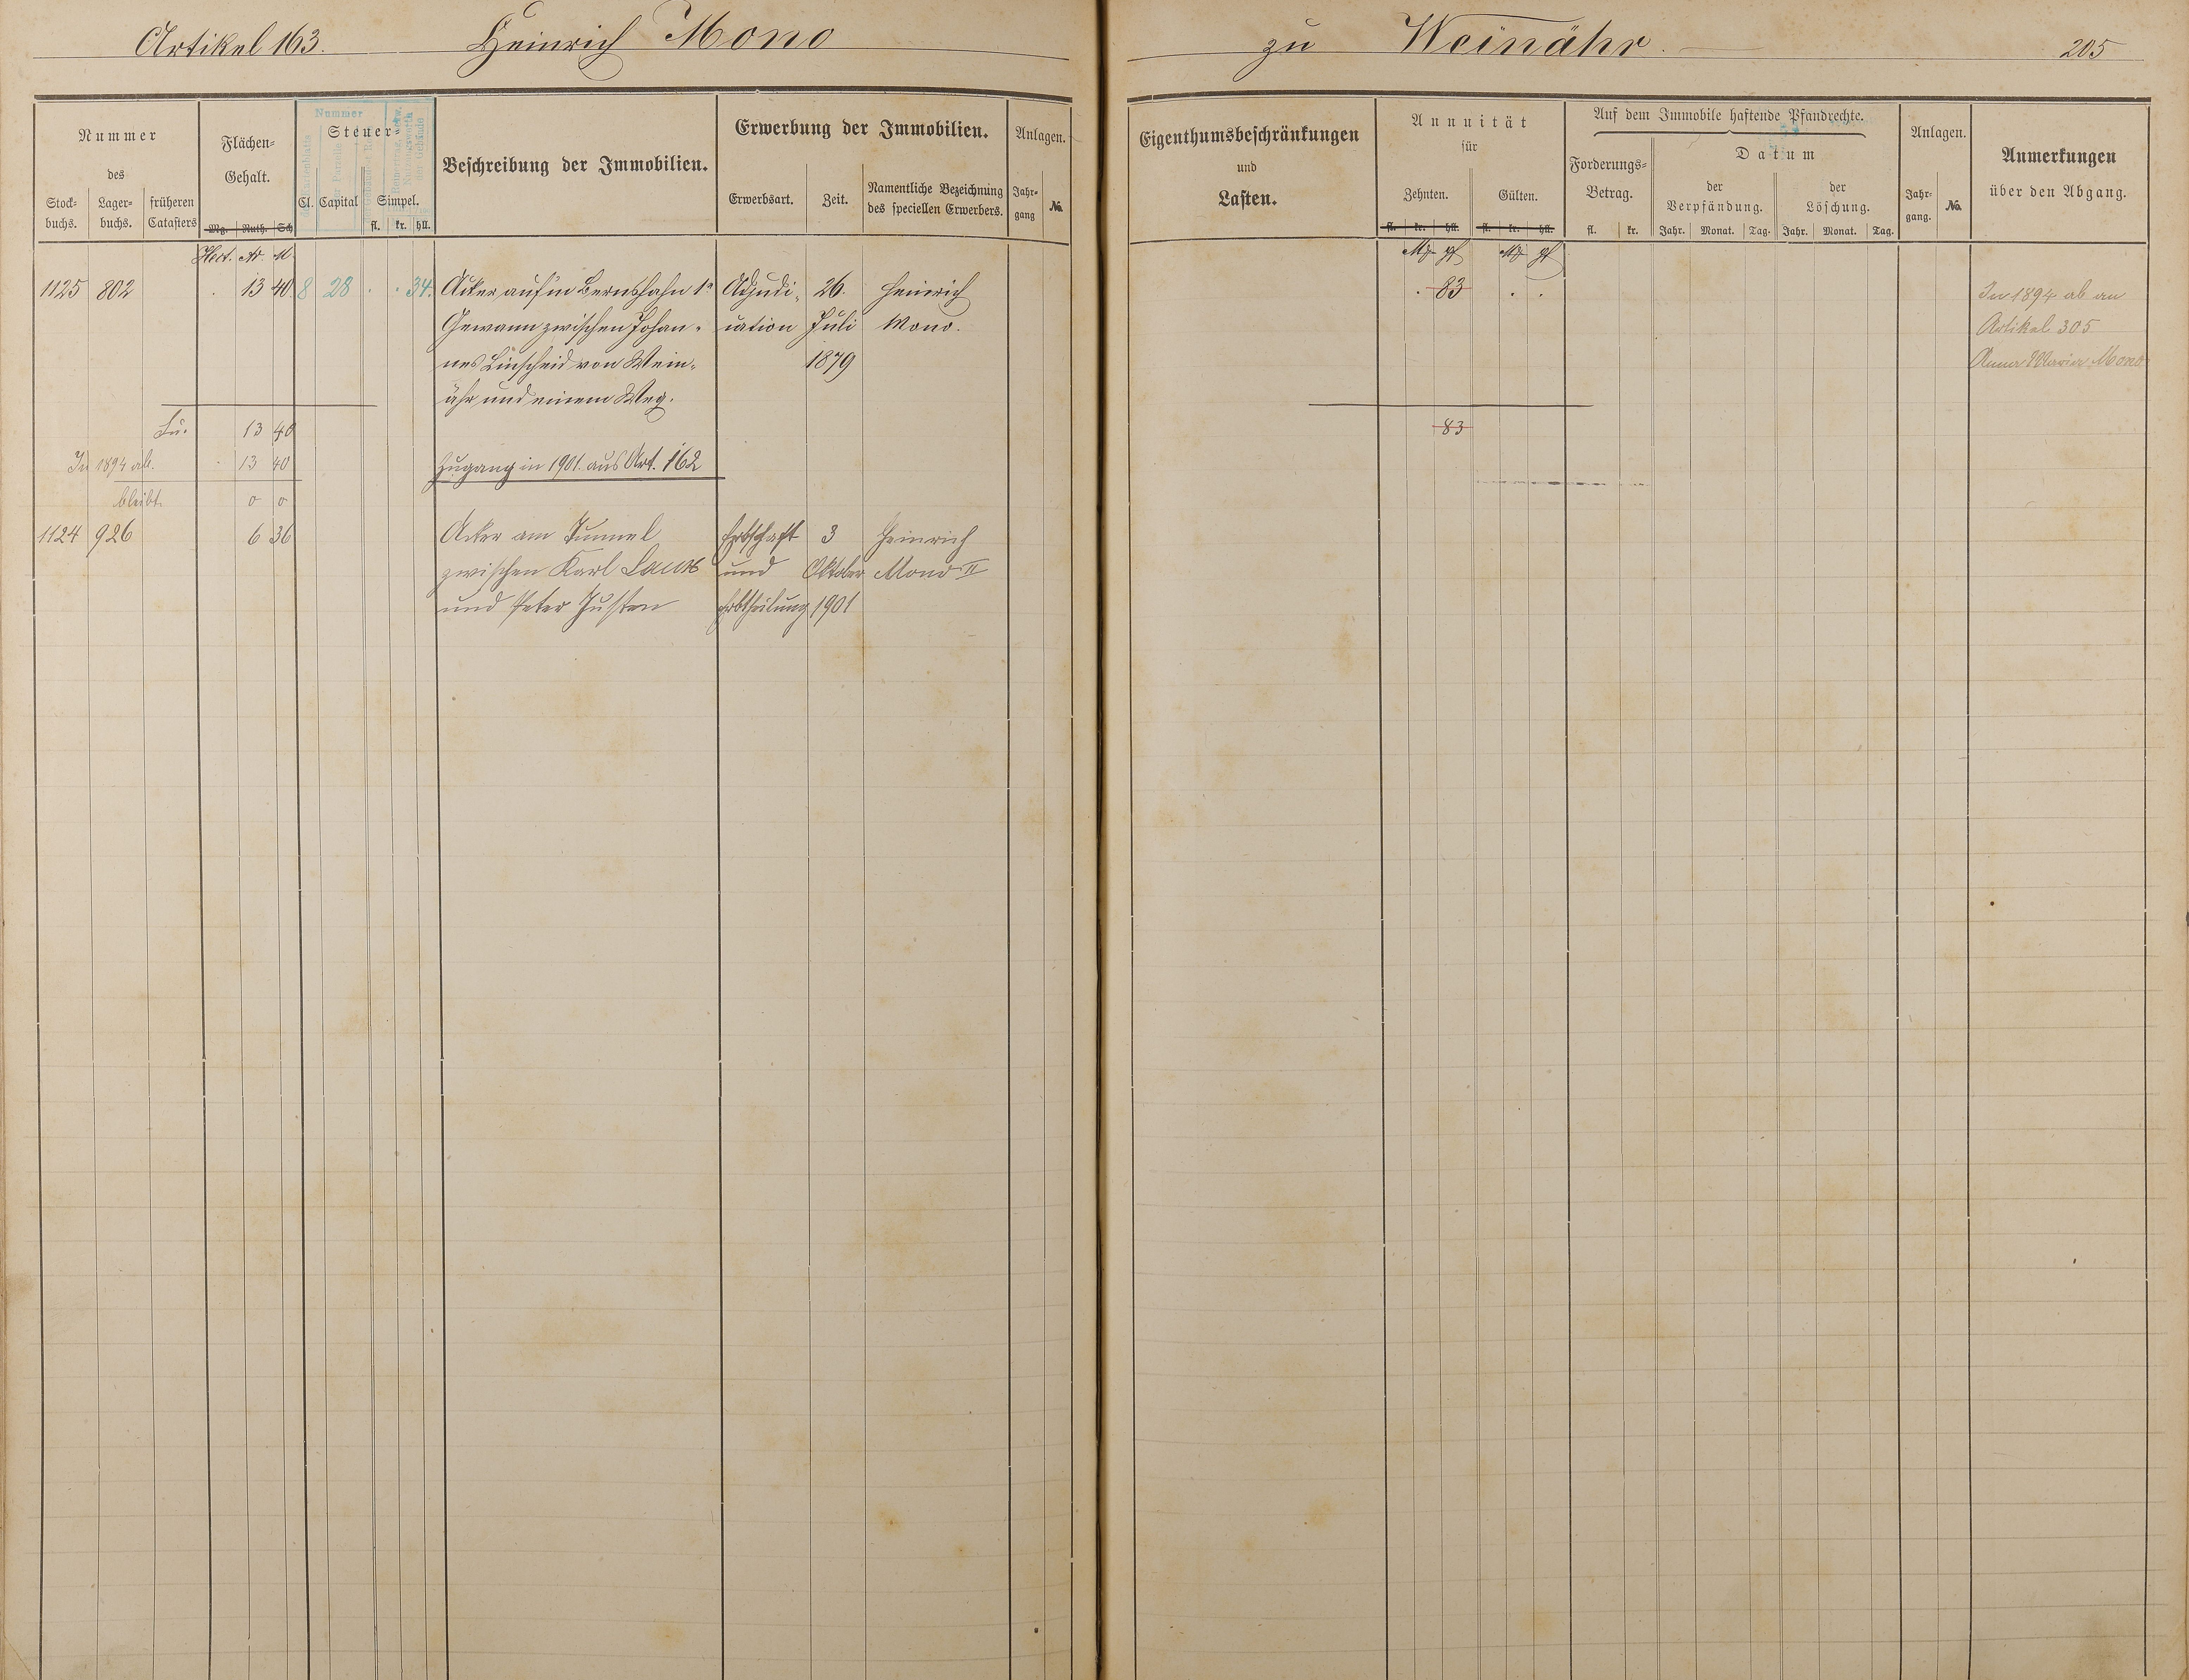 Artikel 163. Heinrich Mono zu Weinähr. 205
Nummer
des
Stock-
buchs.
Lager-
buchs.
früheren
Catasters
Flächen-
Gehalt.
Mg. Ruth. Sch
Nummer
Steuer-
Cl. Capital Simpel.
fl. kr. hll.
Beschreibung der Immobilien.
Erwerbung der Immobilien.
Erwerbsart. Zeit.
Namentliche Bezeichnung
des speciellen Erwerbers.
Anlagen.
Jahr-
gang
No.
Eigenthumsbeschränkungen
und
Lasten.
Annuität
für
Zehnten. Gülten.
fl. kr. hll. fl. kr. hll.
Auf dem Immobile haftende Pfandrechte.
Forderungs-
Betrag.
fl. kr.
Datum
der
Verpfändung.
der
Löschung.
Jahr. Monat. Tag. Jahr. Monat. Tag.
Anlagen.
Jahr-
gang.
No.
Anmerkungen
über den Abgang.
Hect. Ar. M. Mk pf Mk pf
1125 802 . 13 40 8 28 . . 34. Acker auf'm Bernshahn 1r Adjudi- 26. Heinrich . 83 . . In 1894 ab an
Gewann zwischen Johan- cation Juli Mono. Artikel 305
nes Linscheid von Wein- 1879 Anna Maria Mono
ähr und einem Weg.
Su. 13 40 83
In 1894 ab. . 13 40 Zugang in 1901 aus Art. 162
bleibt. 0 0
1124 926 6 36 Acker am Tunnel Erbschaft 3 Heinrich
zwischen Karl Laux und Oktober Mono II
und Peter Justen Erbtheilung 1901